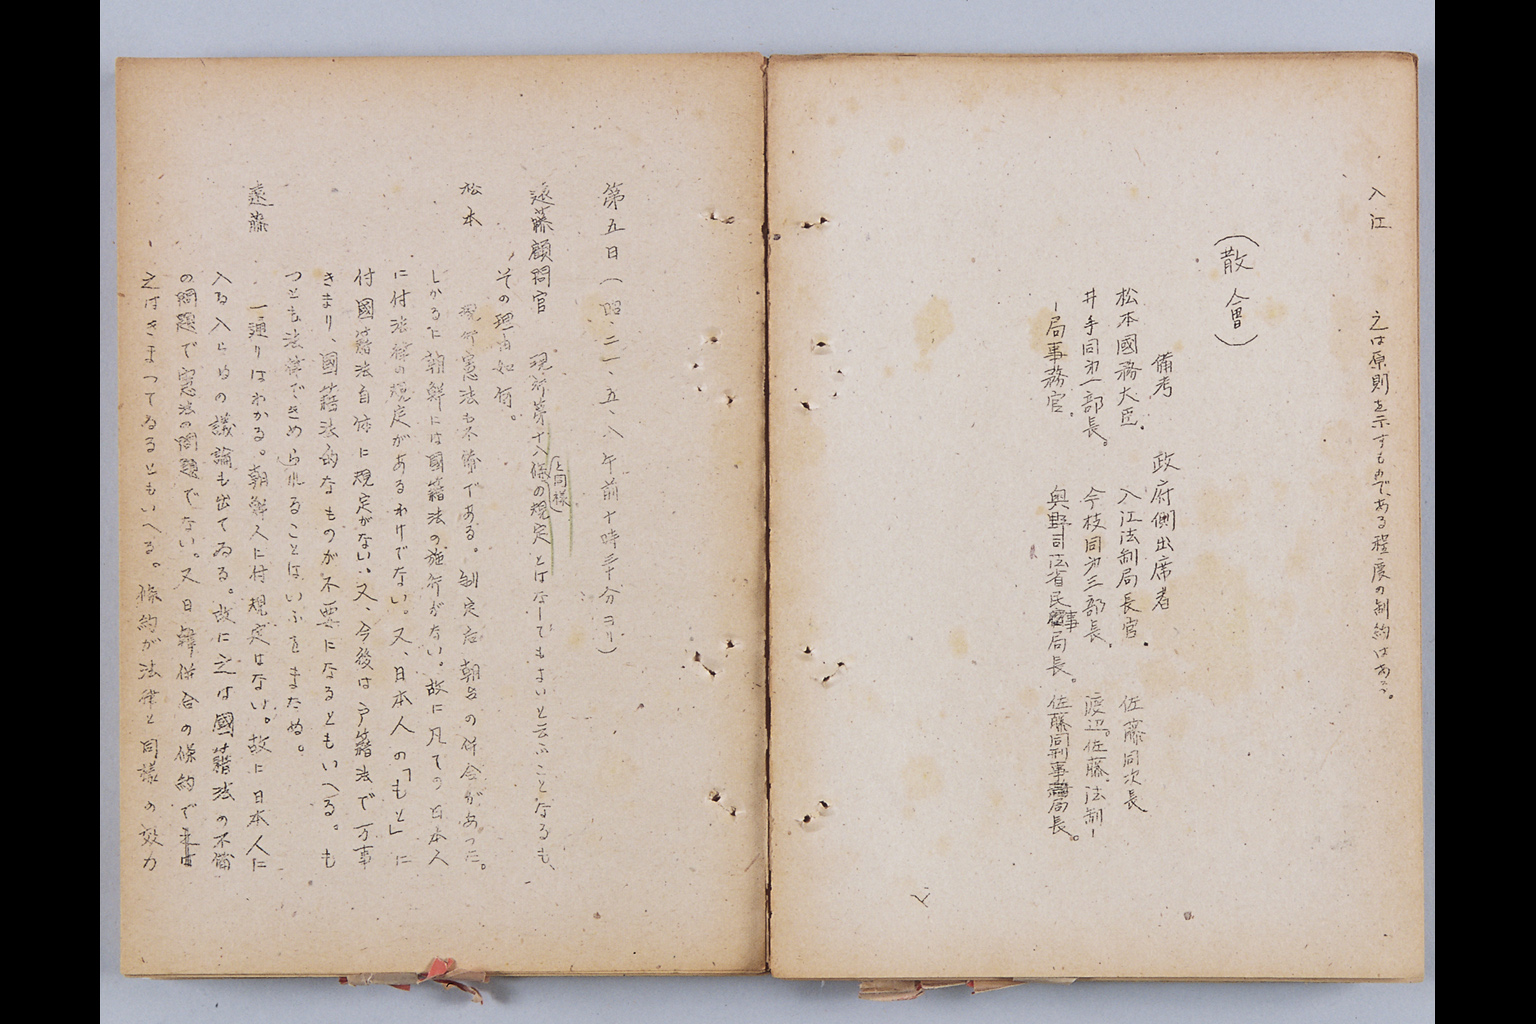 入江　之は原則を示すものである程度の制約はある。
（散會）
備考　政府側出席者
松本國務大臣．入江法制局長官．佐藤同次長
井手同第一部長。今枝同第三部長．渡辺。佐藤。法制ー
ー局事務官．奥野司法省民事局長。佐藤同刑事局長。
第五日（昭、二一、五、八 午前十時三十分ヨリ）
遠藤顧問官　現行第十八條の規定（と同様）とはなしてもよいと云ふことなるも、
その理由如何。
松本　現行憲法も不備である。制定后朝鮮の併合があった。
しかるに朝鮮には國籍法の施行がない。故に凡ての日本人
に付法律の規定があるわけでない。又、日本人の「もと」に
付國籍法自体に規定がない、又、今後は戸籍法で万事
きまり、國籍法的なものが不要になるともいへる。も
っとも法律できめられることはいふをまたぬ。
遠藤　一通りはわかる。朝鮮人に付規定はない。故に日本人に
入る入らぬの議論も出てゐる。故に之は國籍法の不備
の問題で憲法の問題でない。又日韓併合の條約で
之はきまってゐるともいへる。條約が法律と同様の効力